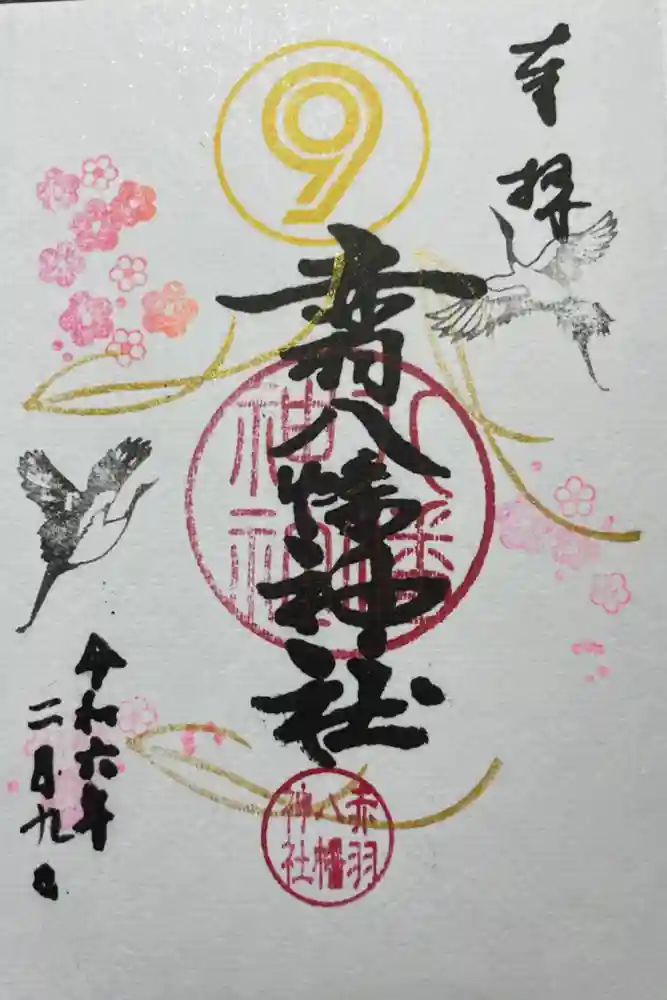 奉拝
赤羽八幡神社
八幡神社
赤羽八幡神社
令和六年
二月九日